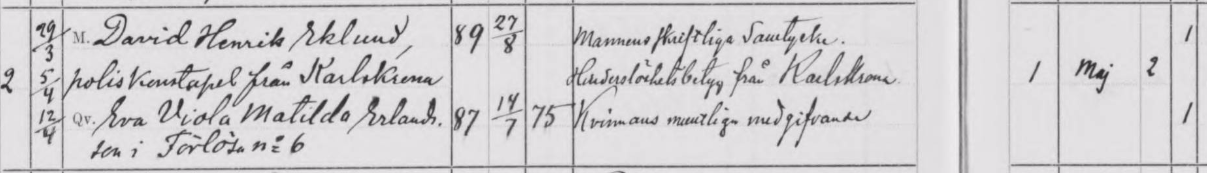 29/3 M. David Henrik Eklund, 89 27/8 Mannens skriftliga Samtycke. 1
2 5/4 poliskonstapel från Karlskrona Hinderslöshetsbetyg från Karlskrona 1 Maj 2
12/4 Qv. Eva Viola Matilda Erlands- 87 14/7 75 Kvinnans muntliga medgifvande 1
son i Förlösa no 6